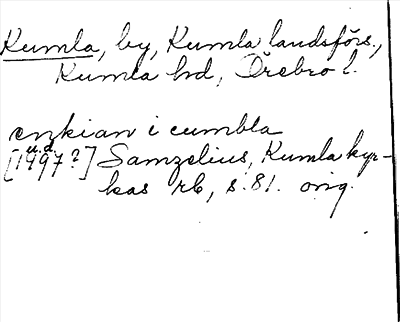 Kumla, by, Kumla landsförs.,
Kumla hd, Örebro l.
enkian i cumbla
u.d.
[1497?] Samzelius, Kumla kyr-
kas rb, s. 81. orig.